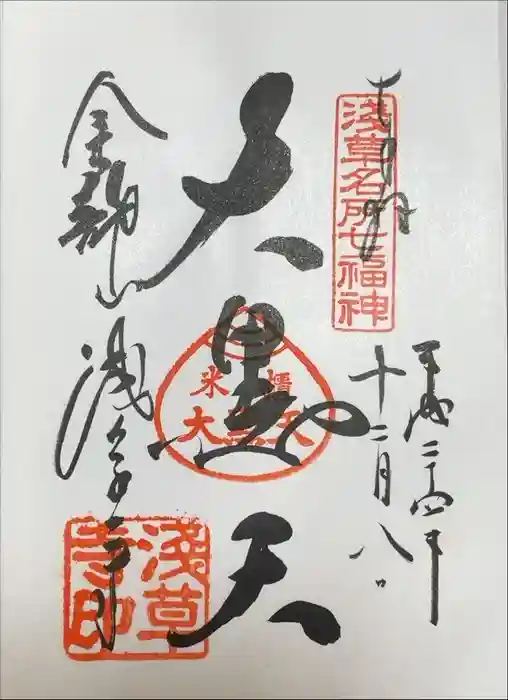 奉拝
淺草名所七福神
平成二十四年
十二月八日
大黒天
米櫃
大黒天
金龍山
浅草寺
淺草寺印